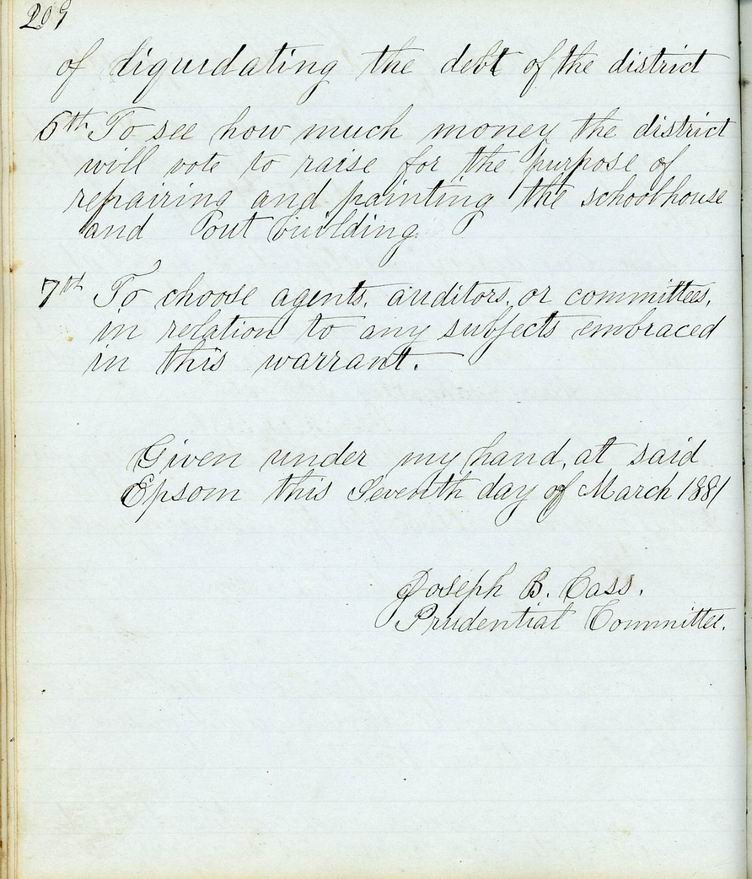 209
of liquidating the debt of the district
6th To see how much money the district
will vote to raise for the purpose of
repairing and painting the schoolhouse
and out building
7th To choose agents, auditors, or committees,
in relation to any subjects embraced
in this warrant.
Given under my hand, at said
Epsom this Seventh day of March 1881
Joseph B. Cass.
Prudential Committee.